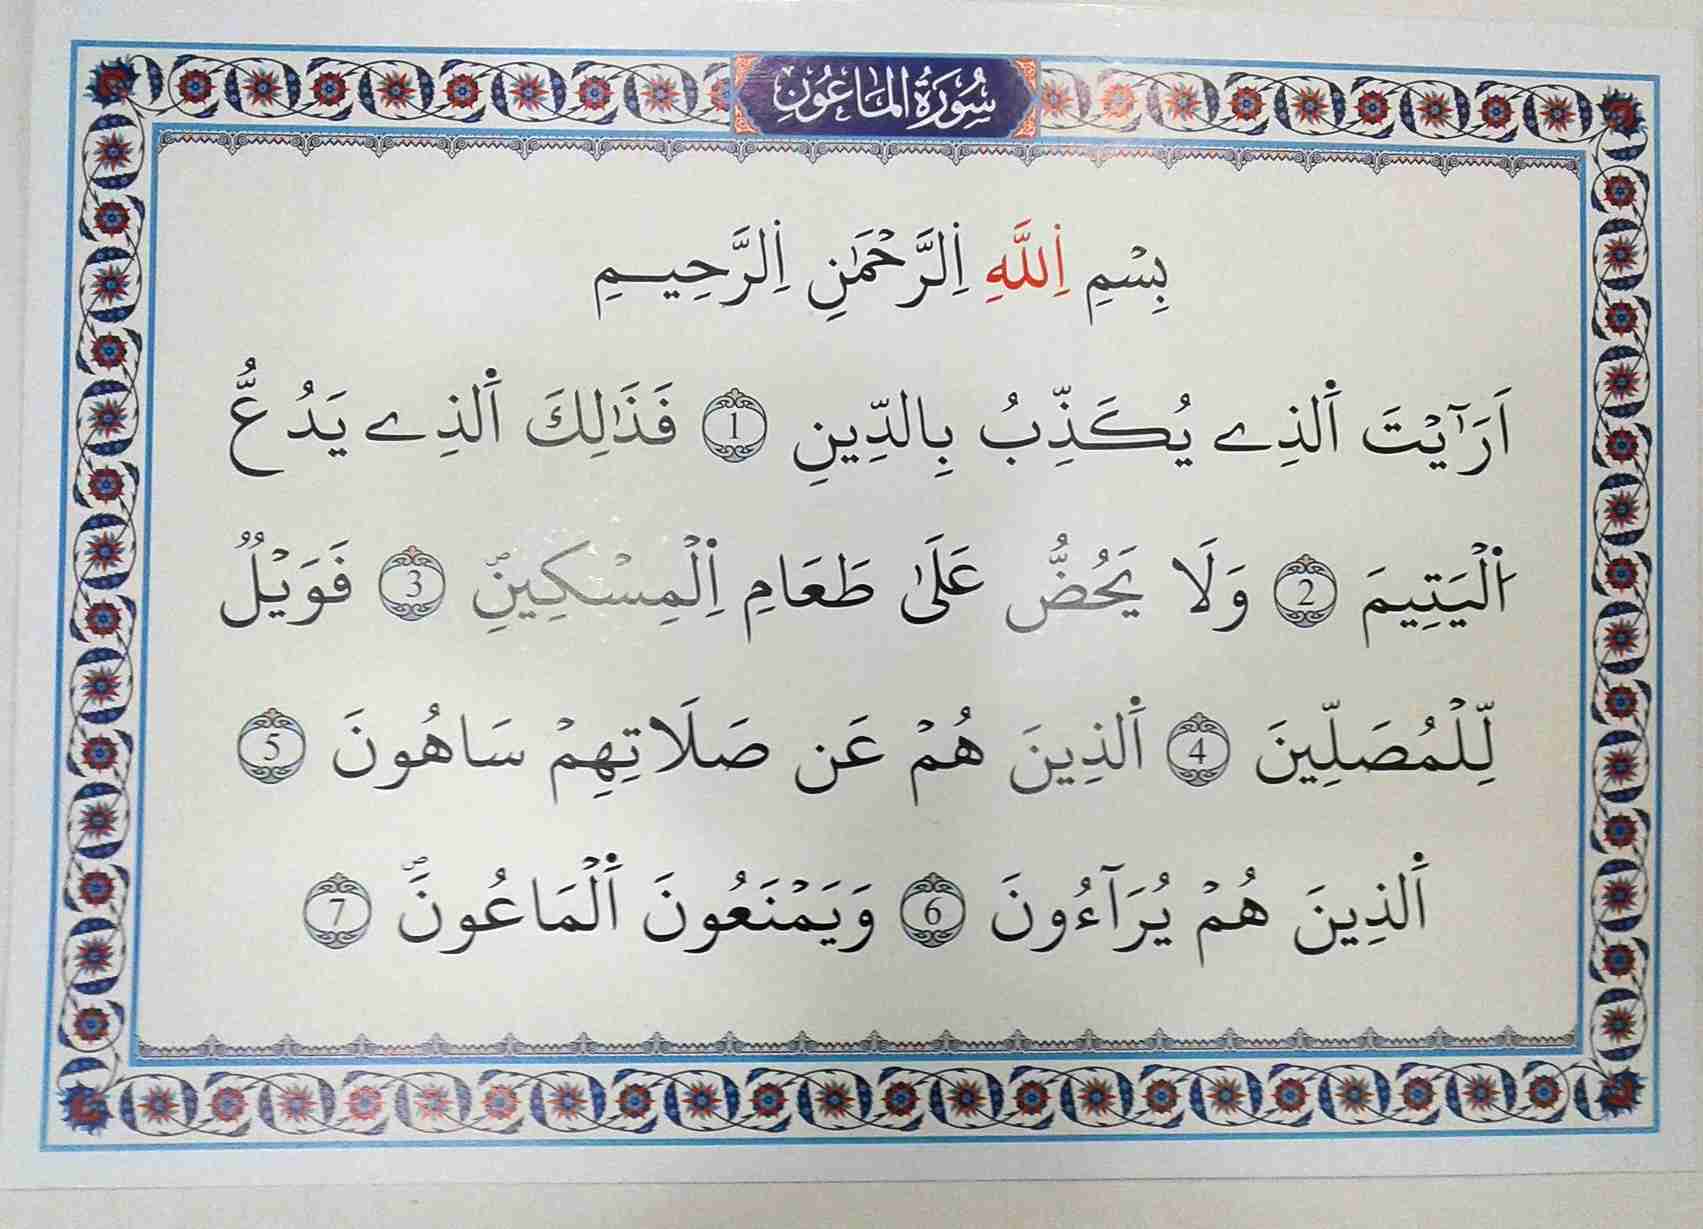 سُورَةُ الْمَاعُونِ
بِسْمِ اِ۬للَّهِ اِ۬لرَّحْمَٰنِ اِ۬لرَّحِيمِ
اَرَٰٓيْتَ اَ۬لذِے يُكَذِّبُ بِالدِّينِ 1 فَذَٰلِكَ اَ۬لذِے يَدُعُّ
اُ۬لْيَتِيمَ 2 وَلَا يَحُضُّ عَلَىٰ طَعَامِ اِ۬لْمِسْكِينِۖ 3 فَوَيْلٌ
لِّلْمُصَلِّينَ 4 اَ۬لذِينَ هُمْ عَن صَلَاتِهِمْ سَاهُونَ 5
اَ۬لذِينَ هُمْ يُرَآءُونَ 6 وَيَمْنَعُونَ اَ۬لْمَاعُونَۖ 7